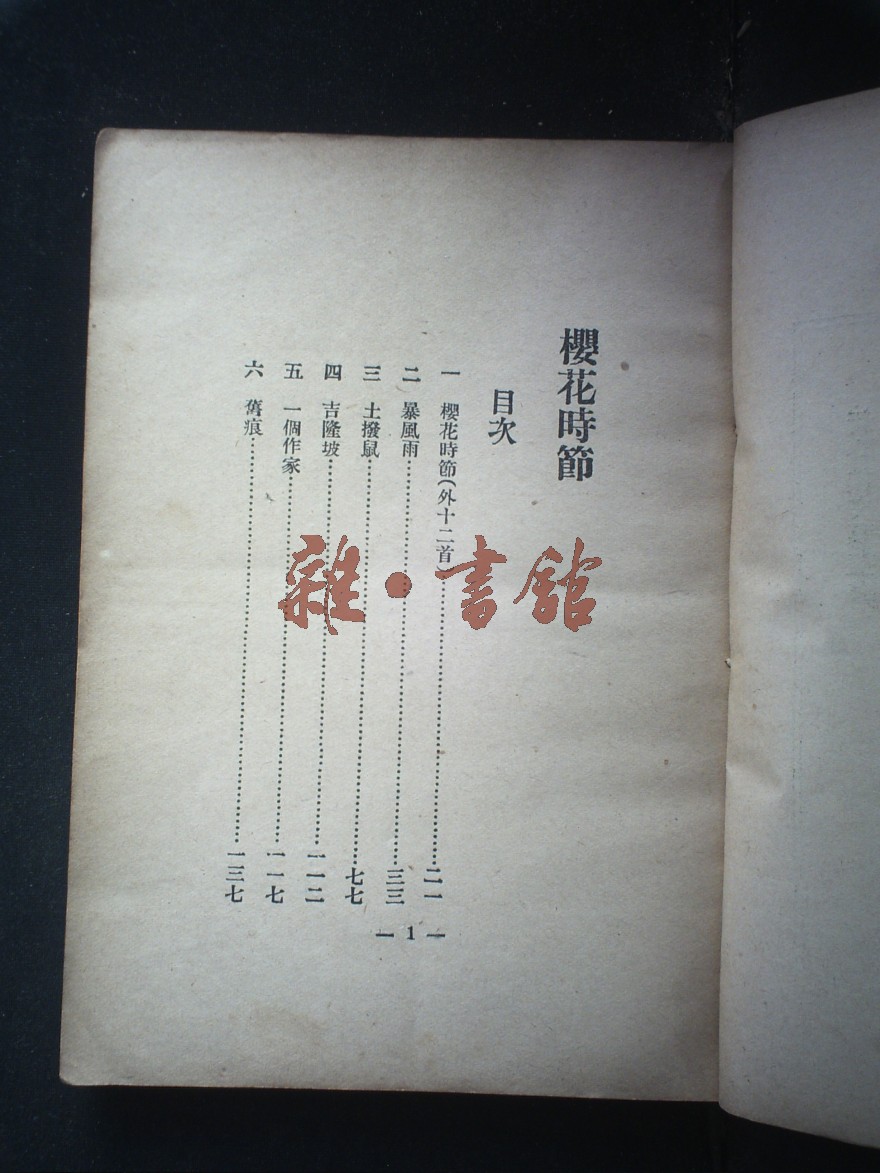 櫻花時節
目次
一 櫻花時節(外十二首)……二一
二 暴風雨……三三
三 土撥鼠……七七
四 吉隆坡……一一二
五 一個作家……一一七
六 舊痕……一三七
— 1 —
雜·書館